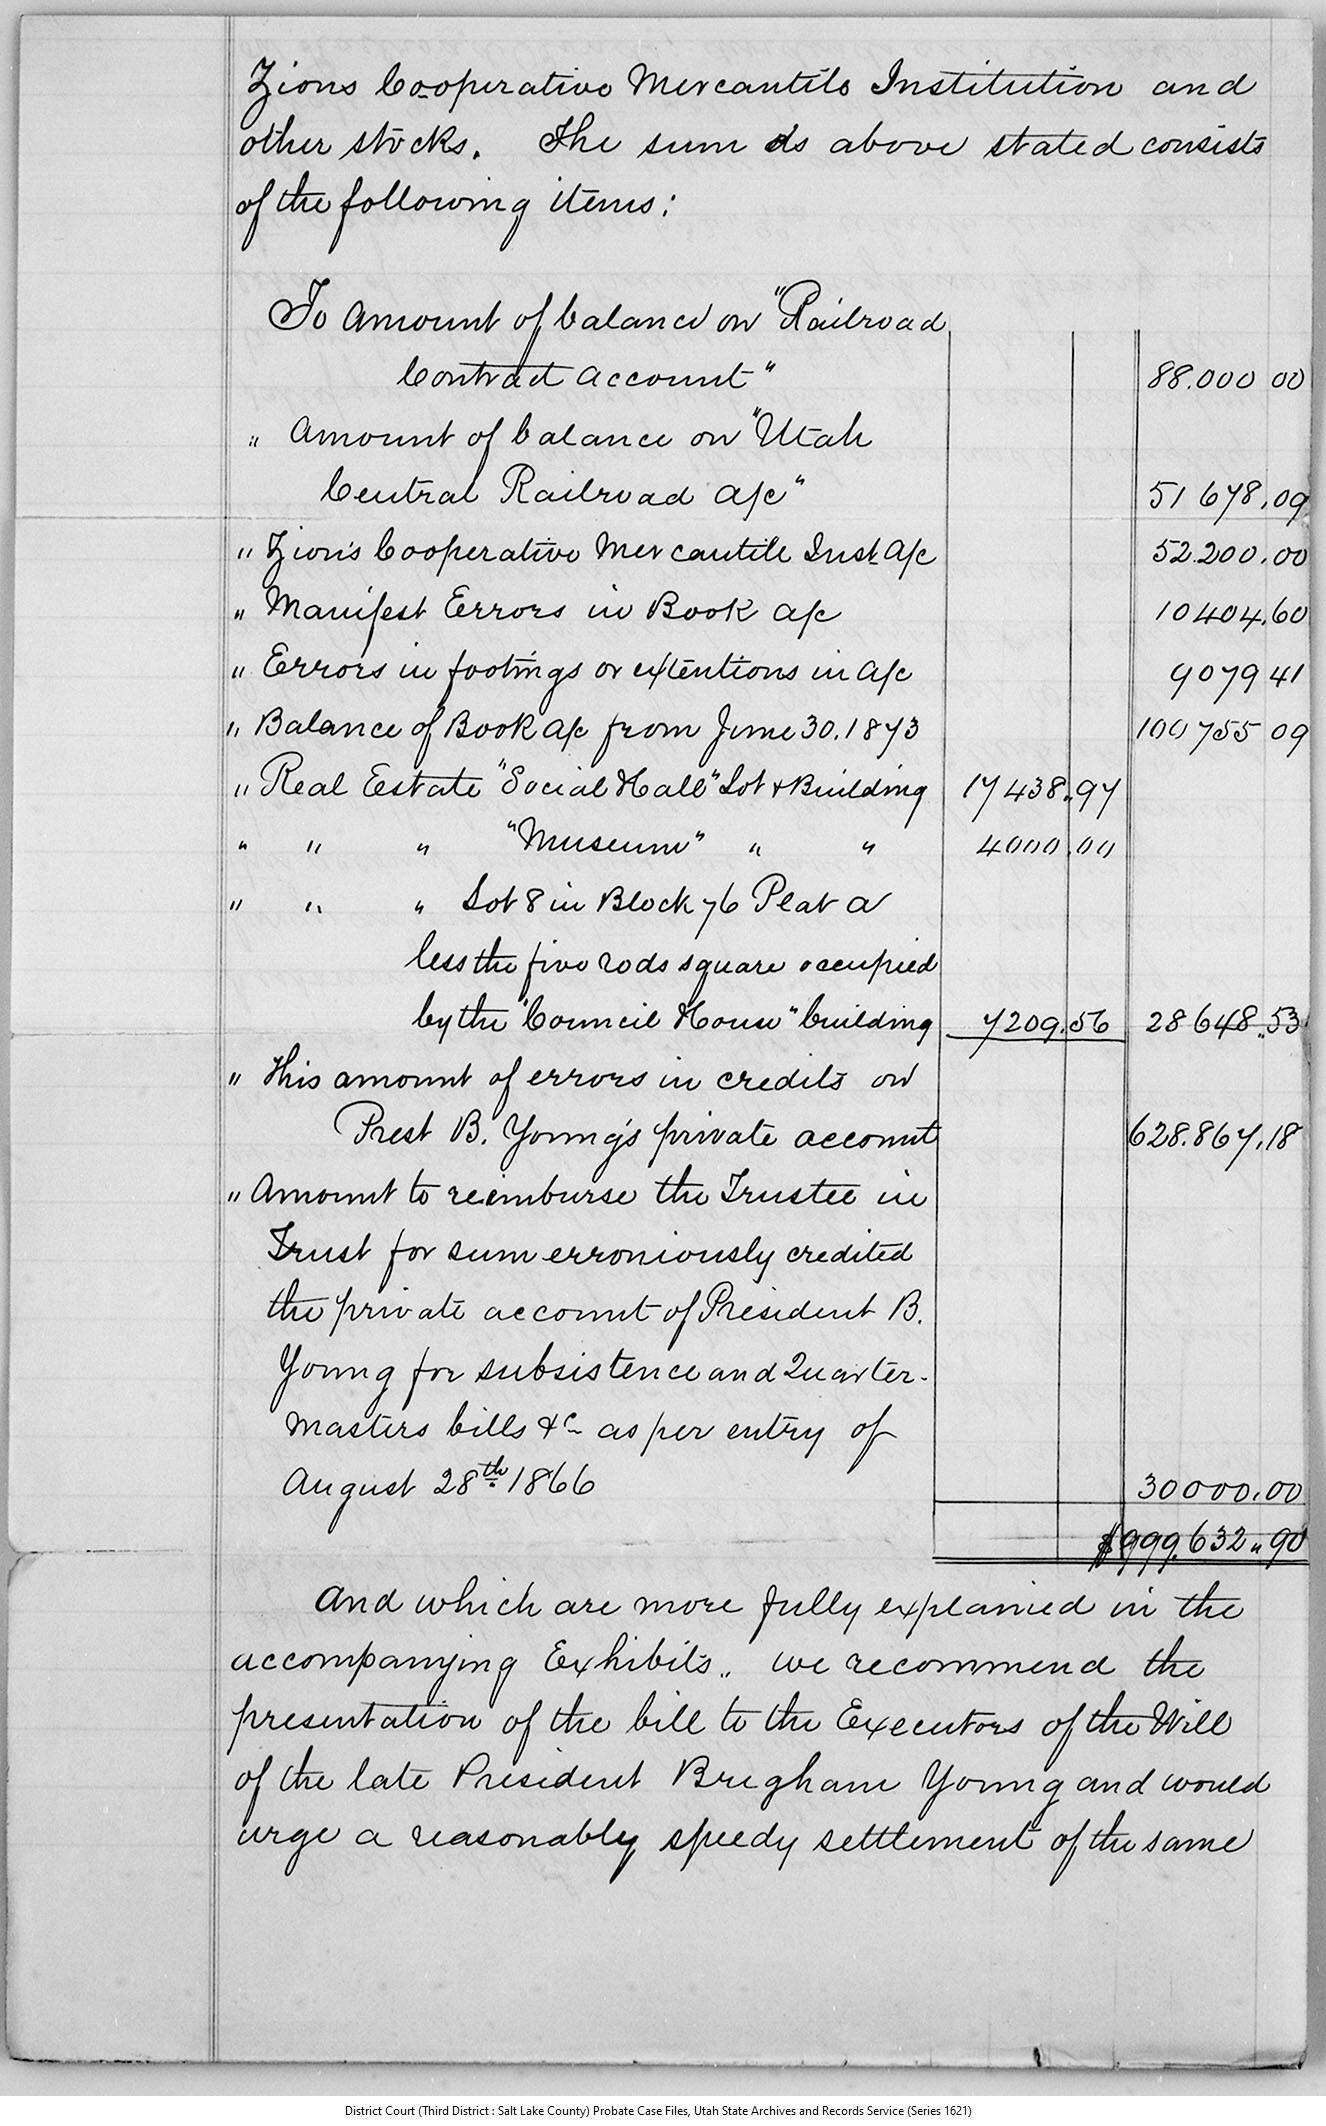 Zions Co-operative Mercantile Institution and
other stocks. The sum as above stated consists
of the following items:
To Amount of balance on "Railroad
Contract Account" 88.000 00
" Amount of balance on "Utah
Central Railroad a/c" 51 678.09
" Zion's Cooperative Mercantile Inst. a/c 52.200.00
" Manifest Errors in Book a/c 10404.60
" Errors in footings or extentions in a/c 9079 41
" Balance of Book a/c from June 30. 1873 100755 09
" Real Estate "Social Hall" Lot & Building 17 438.97
" " " "Museum" " " 4000.00
" " " Lot 8 in Block 76 Plat A
less the five rods square occupied
by the "Council House" building 7209.56 28648.53
" This amount of errors in credits on
Prest B. Young's private account 628.867.18
" Amount to reimburse the Trustee in
Trust for sum erroniously credited
the private account of President B.
Young for subsistence and Quarter-
masters bills &c as per entry of
August 28th 1866 30000.00
$999.632.90
And which are more fully explained in the
accompanying Exhibits.. We recommend the
presentation of the bill to the Executors of the Will
of the late President Brigham Young and would
urge a reasonably speedy settlement of the same
District Court (Third District : Salt Lake County) Probate Case Files, Utah State Archives and Records Service (Series 1621)